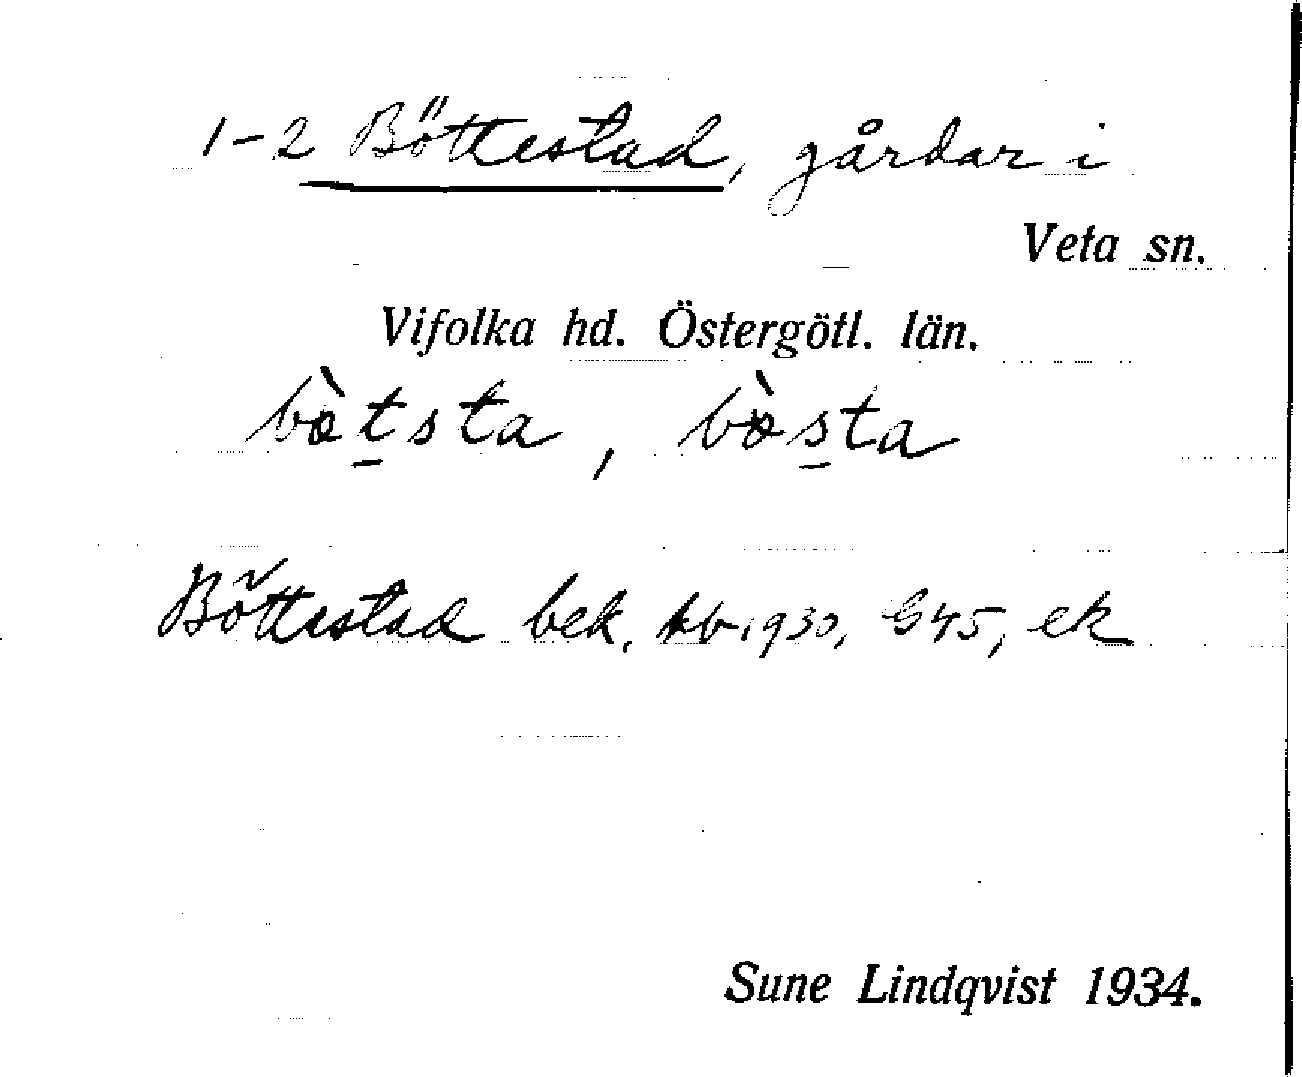 1-2 Böttestad, gårdar i
Veta sn.
Vifolka hd. Östergötl. län.
bòtsta, bòsta
Böttestad bek. kb 1930, G45, ek
Sune Lindqvist 1934.